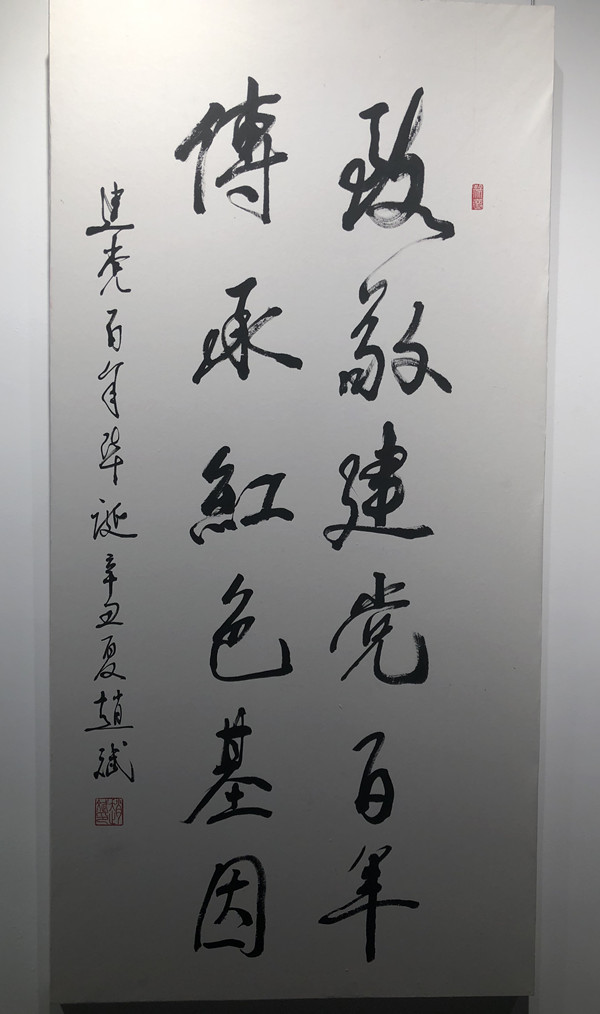 致敬建党百年
傳承紅色基因
建党百年华诞辛丑夏趙斌